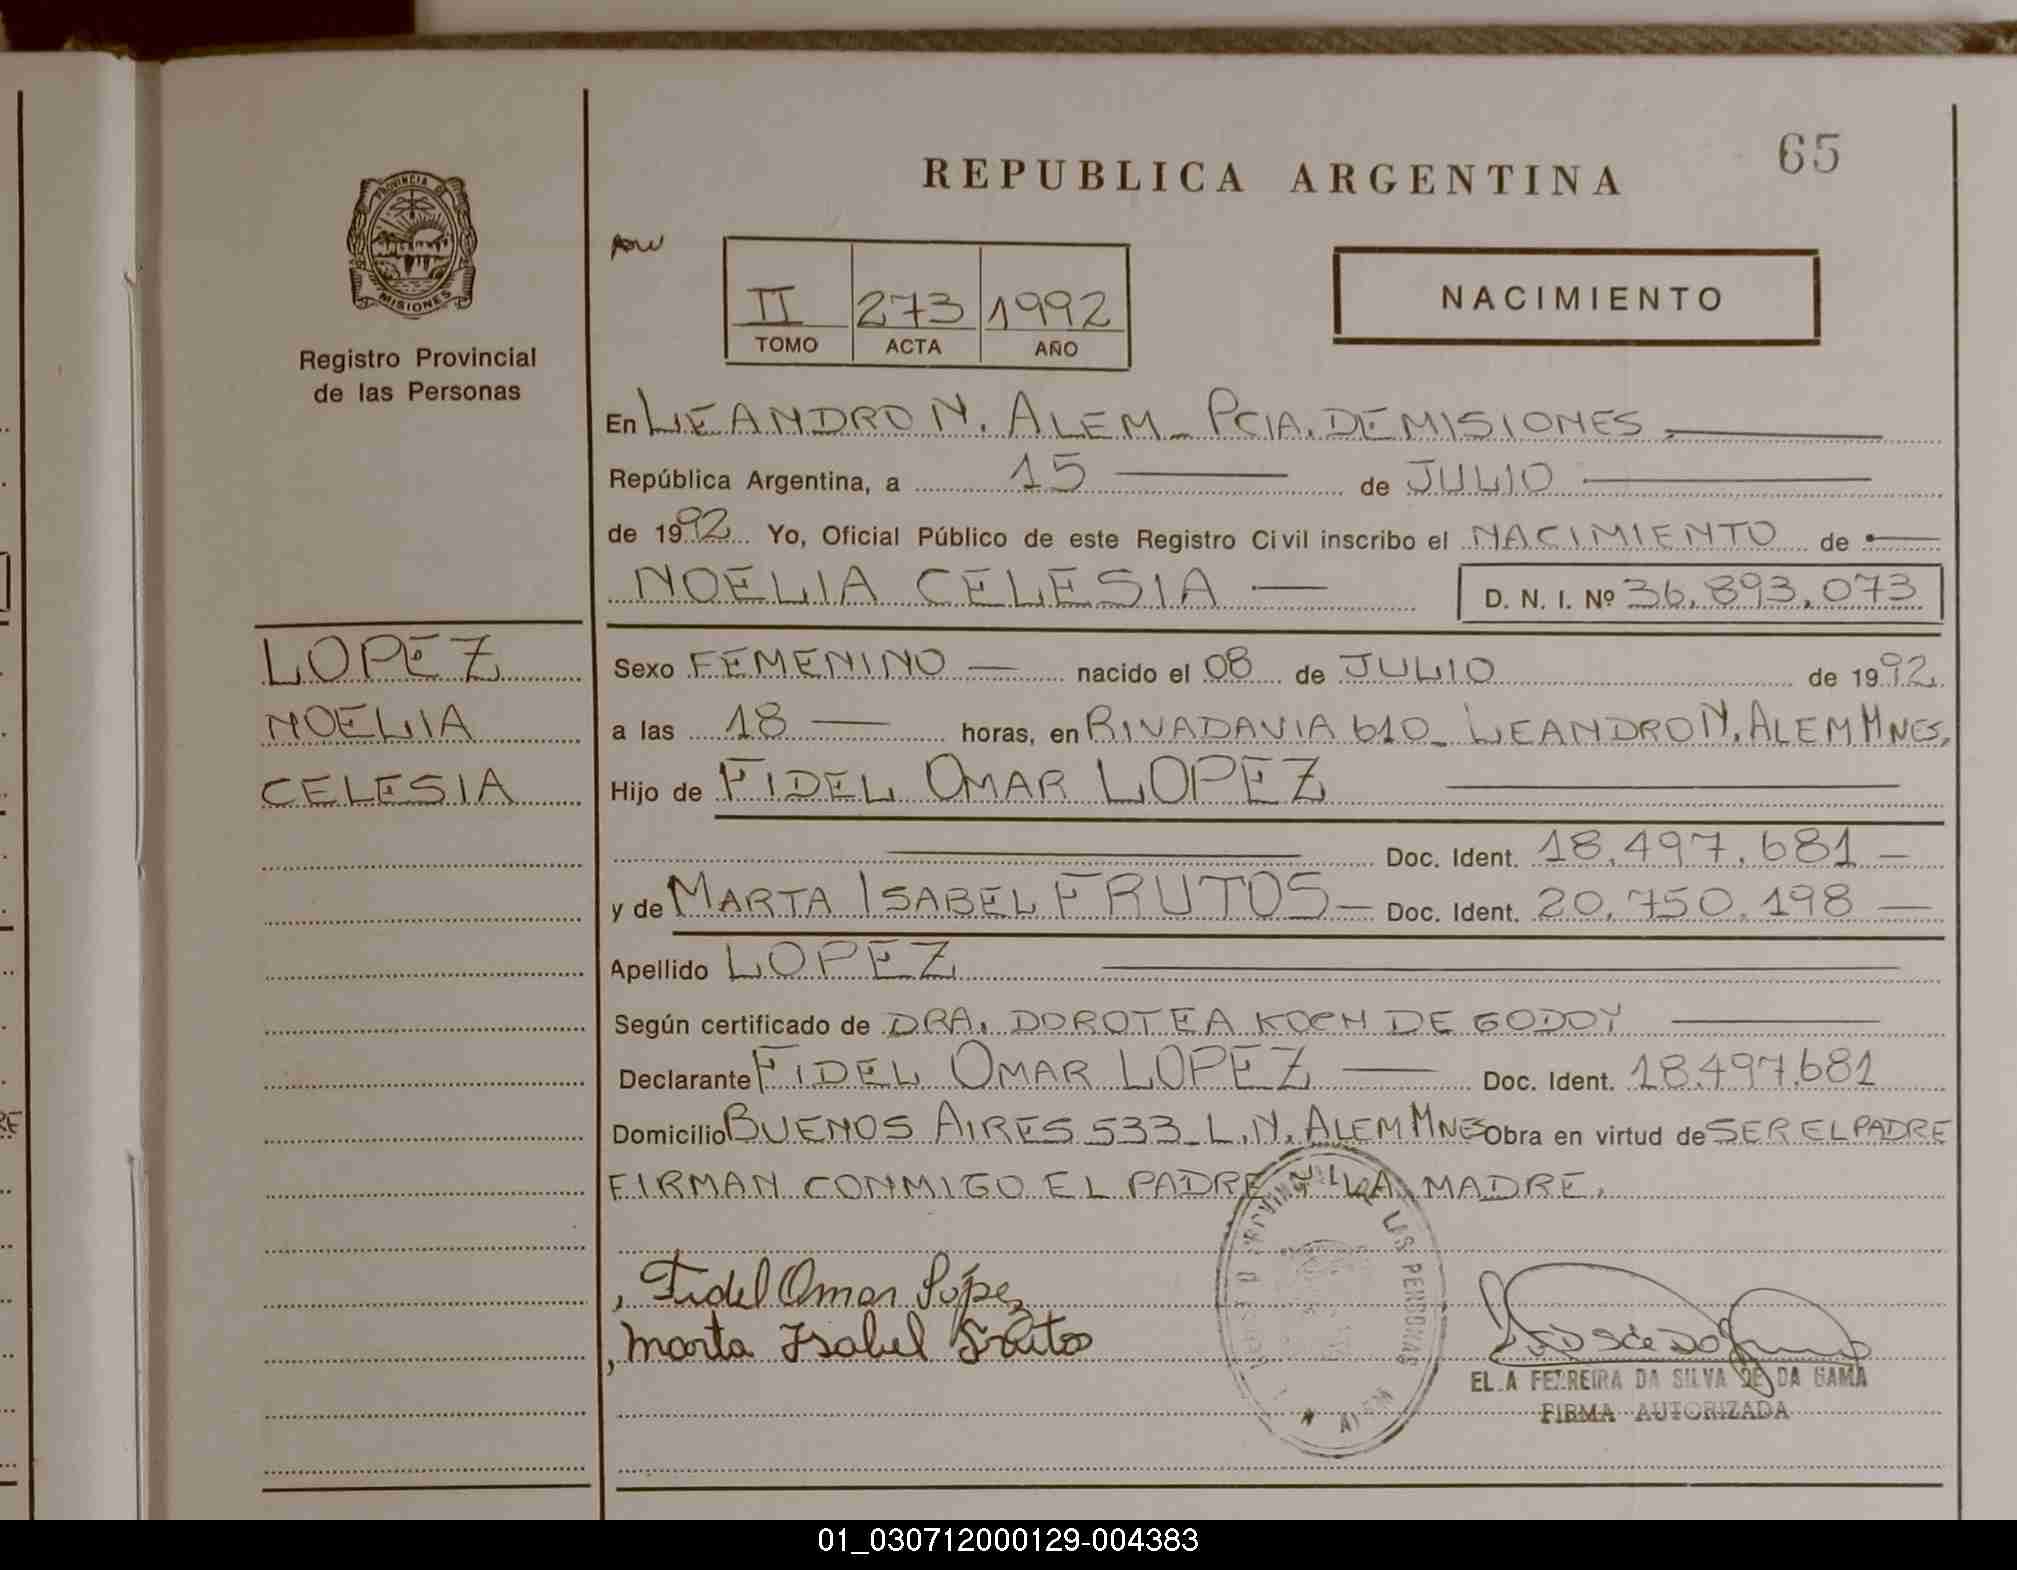 65
REPUBLICA ARGENTINA
PROVINCIA DE
MISIONES
Registro Provincial
de las Personas
II 273 1992
TOMO ACTA AÑO
NACIMIENTO
En LEANDRO N. ALEM_ PCIA. DE MISIONES.
República Argentina, a 15 de JULIO
de 1992 Yo, Oficial Público de este Registro Civil inscribo el NACIMIENTO de
NOELIA CELESIA D. N. I. Nº 36.893.073
LOPEZ
NOELIA
CELESIA
Sexo FEMENINO nacido el 08 de JULIO de 1992
a las 18 horas, en RIVADAVIA 610_ LEANDRO N. ALEM MNES.
Hijo de FIDEL OMAR LOPEZ
Doc. Ident. 18.497.681
y de MARTA ISABEL FRUTOS Doc. Ident. 20.750.198
Apellido LOPEZ
Según certificado de DRA. DOROTEA KOCH DE GODOY
Declarante FIDEL OMAR LOPEZ Doc. Ident. 18.497.681
Domicilio BUENOS AIRES 533_L.N. ALEM MNES Obra en virtud de SER EL PADRE
FIRMAN CONMIGO EL PADRE Y LA MADRE.
Fidel Omar López
Marta Isabel Frutos
LAS PERSONAS
ALEM
FERREIRA DA SILVA DE DA GAMA
FIRMA AUTORIZADA
01_030712000129-004383